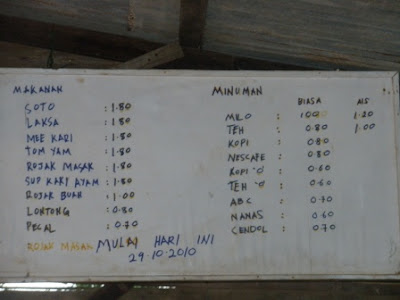 MAKANAN
SOTO : 1.80
LAKSA : 1.80
MEE KARI : 1.80
TOM YAM : 1.80
ROJAK MASAK : 1.80
SUP KARI AYAM : 1.80
ROJAK BUAH : 1.00
LONTONG : 0.80
PECAL : 0.70
ROJAK MASAK MULAI HARI INI
29.10.2010
MINUMAN
BIASA AIS
MILO : 1.00 1.20
TEH : 0.80 1.00
KOPI : 0.80
NESCAFE : 0.80
KOPI 'O' : 0.60
TEH 'O' : 0.60
ABC : 0.70
NANAS : 0.60
CENDOL : 0.70